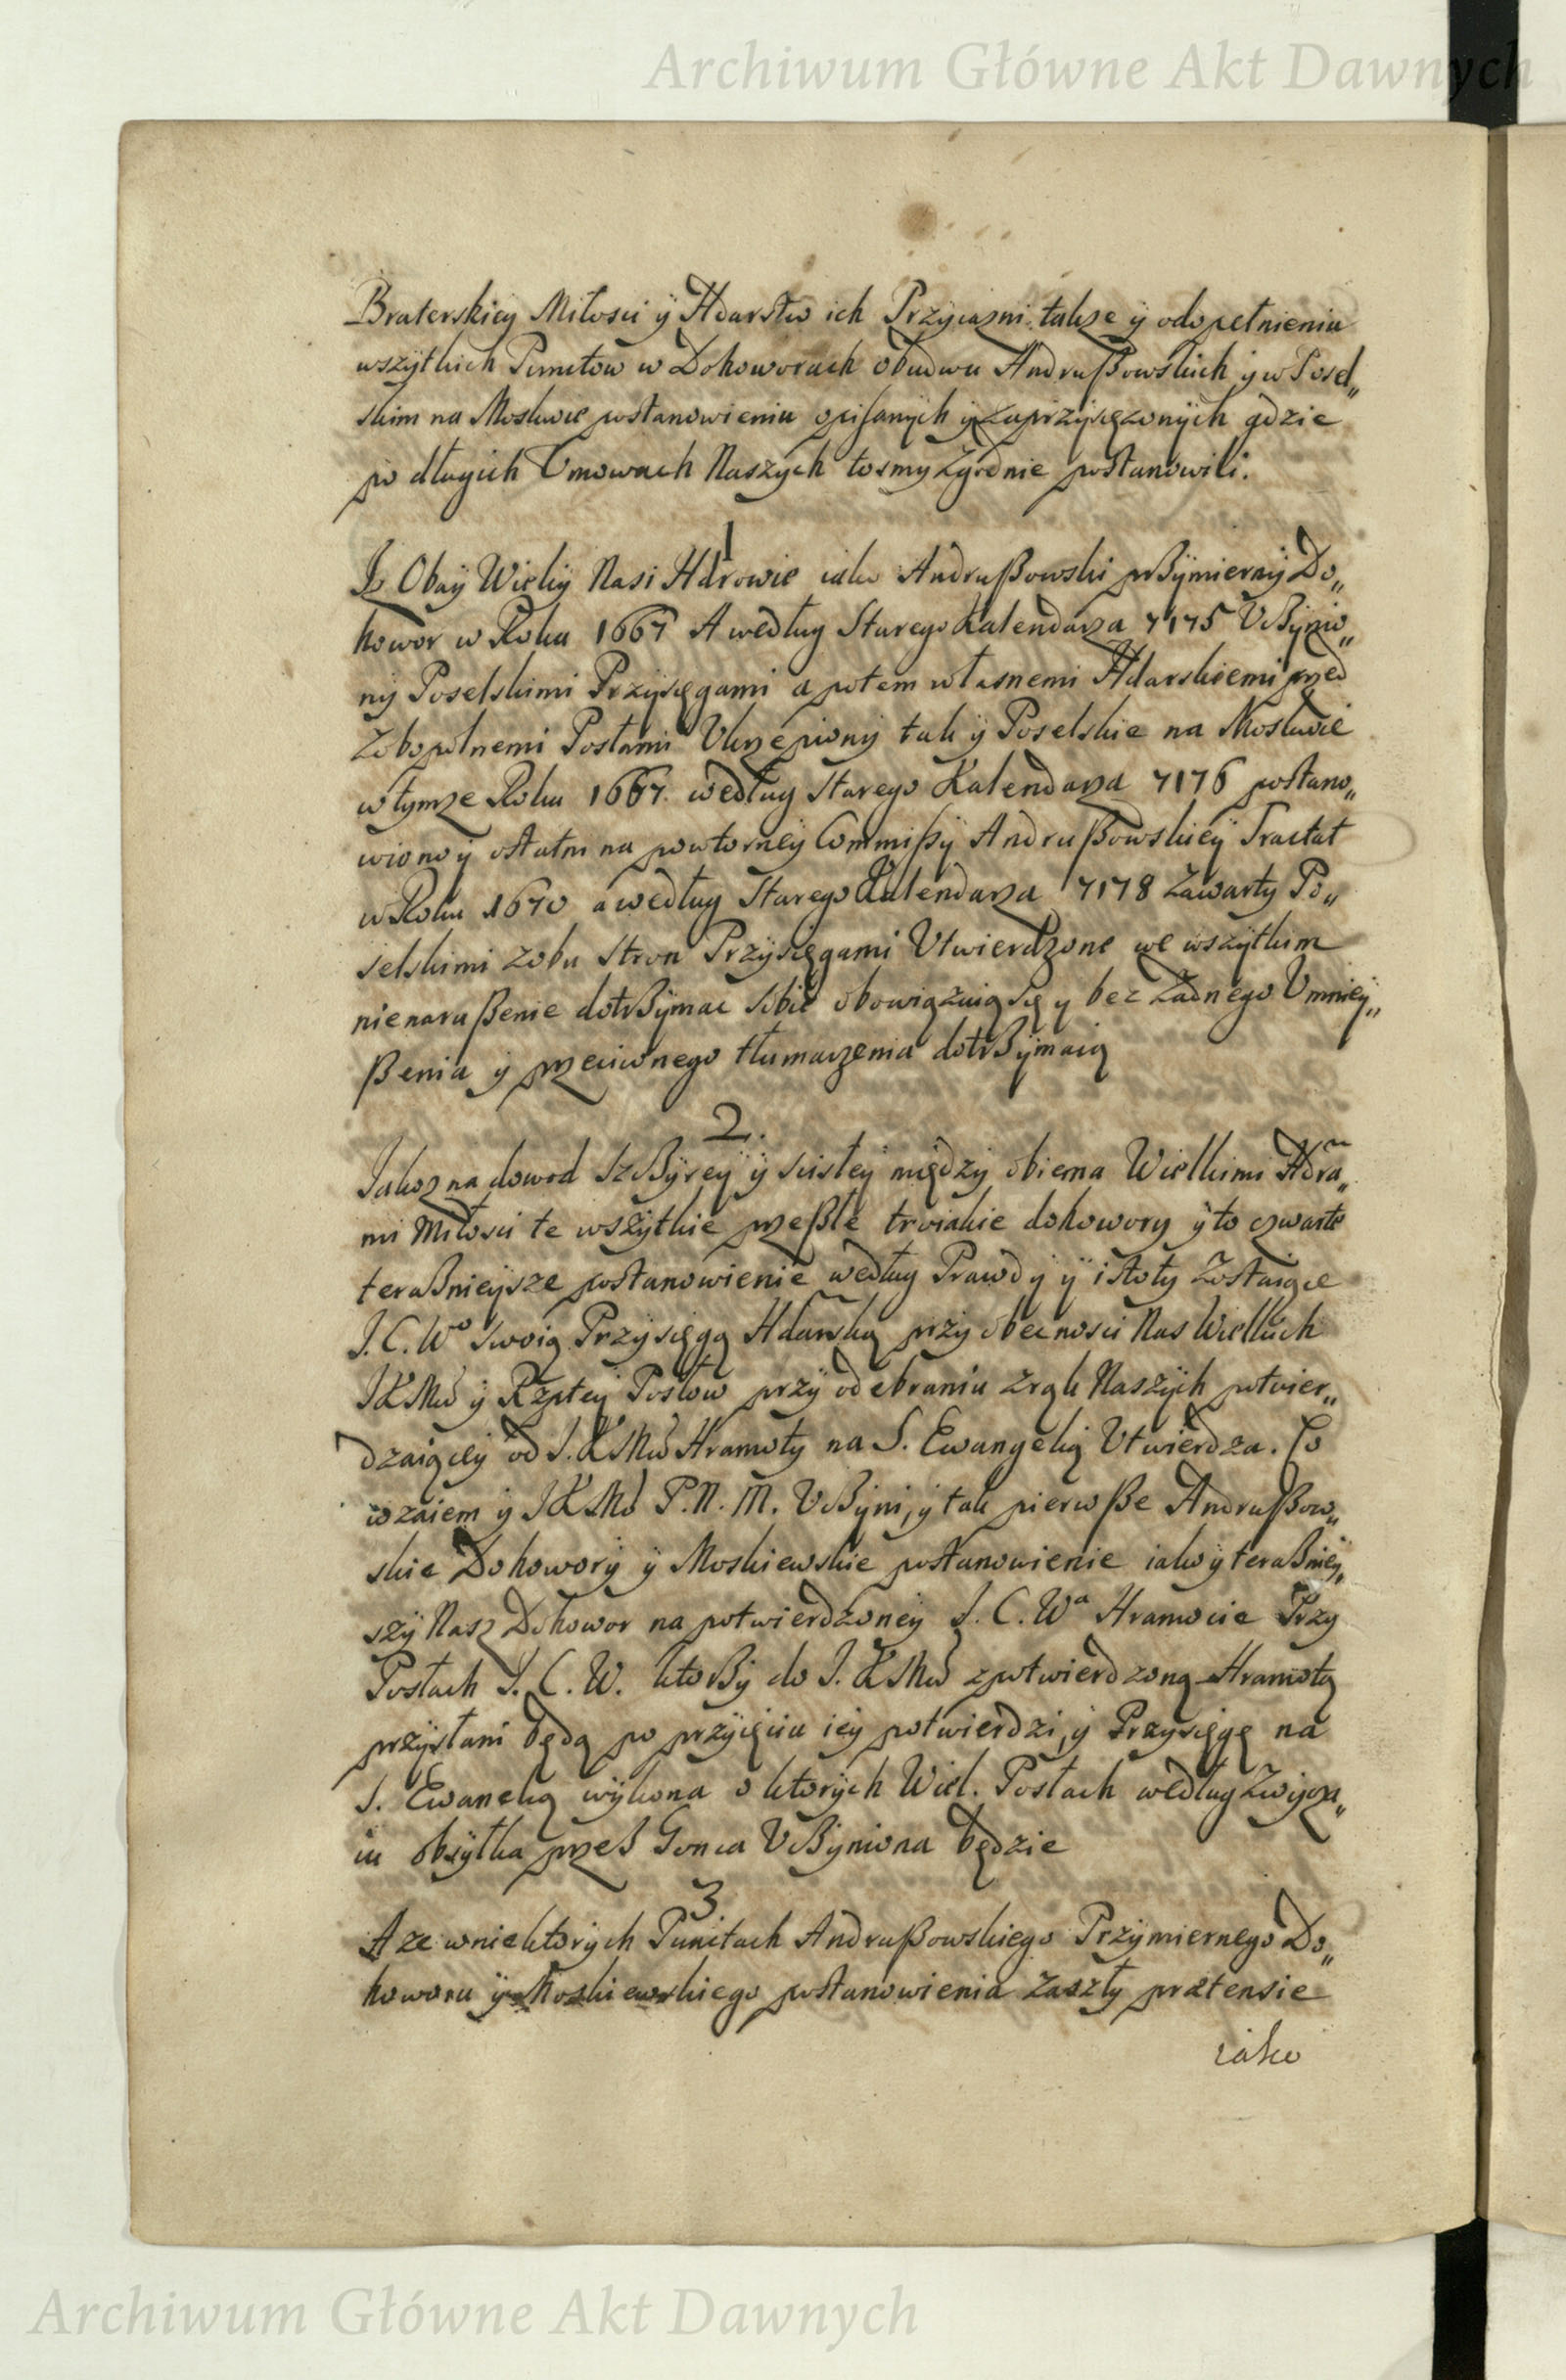 Archiwum Główne Akt Dawnych
Braterskiey Miłosci ÿ Hdarstw ich Przyiazni takze ÿ odopełnieniu
wszÿtkich Punctow w Dohoworach obudwu Andrußowskich ÿ w Posel„
skim na Moskwie postanowieniu opisanÿch ÿ zaprzÿsięzonÿch gdzie
po długich Vmowach Naszÿch tosmy zgodnie postanowili.
1
Iz Obaÿ Wielcÿ Nasi Hdrowie iako Andrußowski przÿmiernÿ Do„
howor w Roku 1667 A według Starego Kalendarza 7175 Vczÿnio„
nÿ Poselskimi Przÿsięgami a potem własnemi Hdarskiemi przed
zobopolnemi Posłami Vkrzepionÿ tak ÿ Poselskie na Moskwie
w tymze Roku 1667. według Starego Kalendarza 7176 postano„
wiono ÿ ostatni na powtorneÿ Commißÿ Andrußowskieÿ Tractat
w Roku 1670 a według Starego Kalendarza 7178 zawarty Po„
selskimi z obu Stron Przÿsięgami Vtwierdzone we wszÿtkim
nienarußenie dotrzÿmac sobie obowiązuią się y bez zadnego Vmnieÿ„
ßenia ÿ przeciwnego tłumaczenia dotrzÿmaią
2.
Iakoz na dowod szczÿreÿ ÿ scisłeÿ międzÿ obiema Wielkimi Hdra„
mi Miłosci te wszÿtkie przeßłe troiakie dohowory ÿ to czwarte
teraßnieÿsze postanowienie według Prawdÿ ÿ istoty zostaiące
I. C. Wo swoią Przÿsięgą Hdarską przÿ obecnosci Nas Wielkich
IKMci ÿ Rzptej Posłow przÿ odebraniu z rąk Naszÿch potwier„
dzaiąceÿ od I. KMci Hramoty na S. Ewangelią Vtwierdza. Co
wzaiem ÿ IKMć P. N. M. Vczÿni, ÿ tak pierwße Andrußow„
skie Dohoworÿ ÿ Moskiewskie postanowienie iako ÿ teraßnieÿ„
szÿ Nasz Dohowor na potwierdzoneÿ I. C. Wa Hramocie Przy
Posłach I. C. W. ktorzÿ do I. KMci z potwierdzoną Hramotą
przÿsłani będą po przÿięciu ieÿ potwierdzi, ÿ Przysięgę na
S. Ewanelią wÿkona o ktorÿch Wiel. Posłach według Zwÿcza„
iu obsÿłka przez Gonca Vczÿniona będzie
3.
A ze w niektorÿch Punctach Andrußowskiego Przÿmiernego Do„
howoru ÿ Moskiewskiego postanowienia zaszły prætensie
iako
Archiwum Główne Akt Dawnych